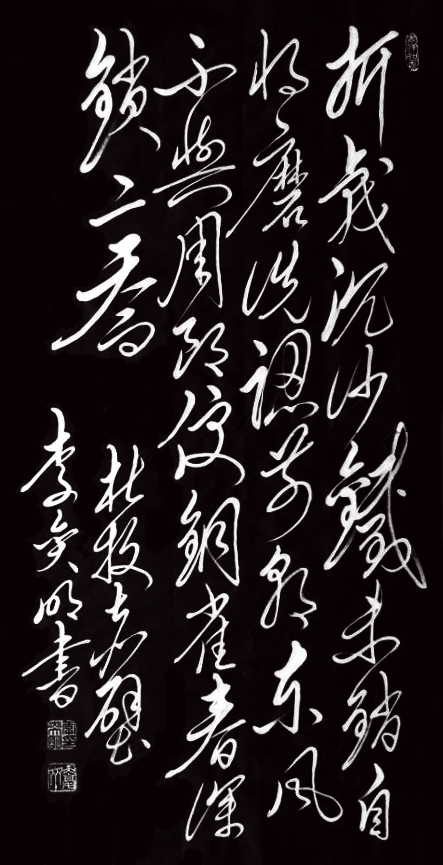 折戟沉沙鐵未銷自
將磨洗認前朝東風
不與周郎便銅雀春深
鎖二喬
杜牧赤壁
李明書